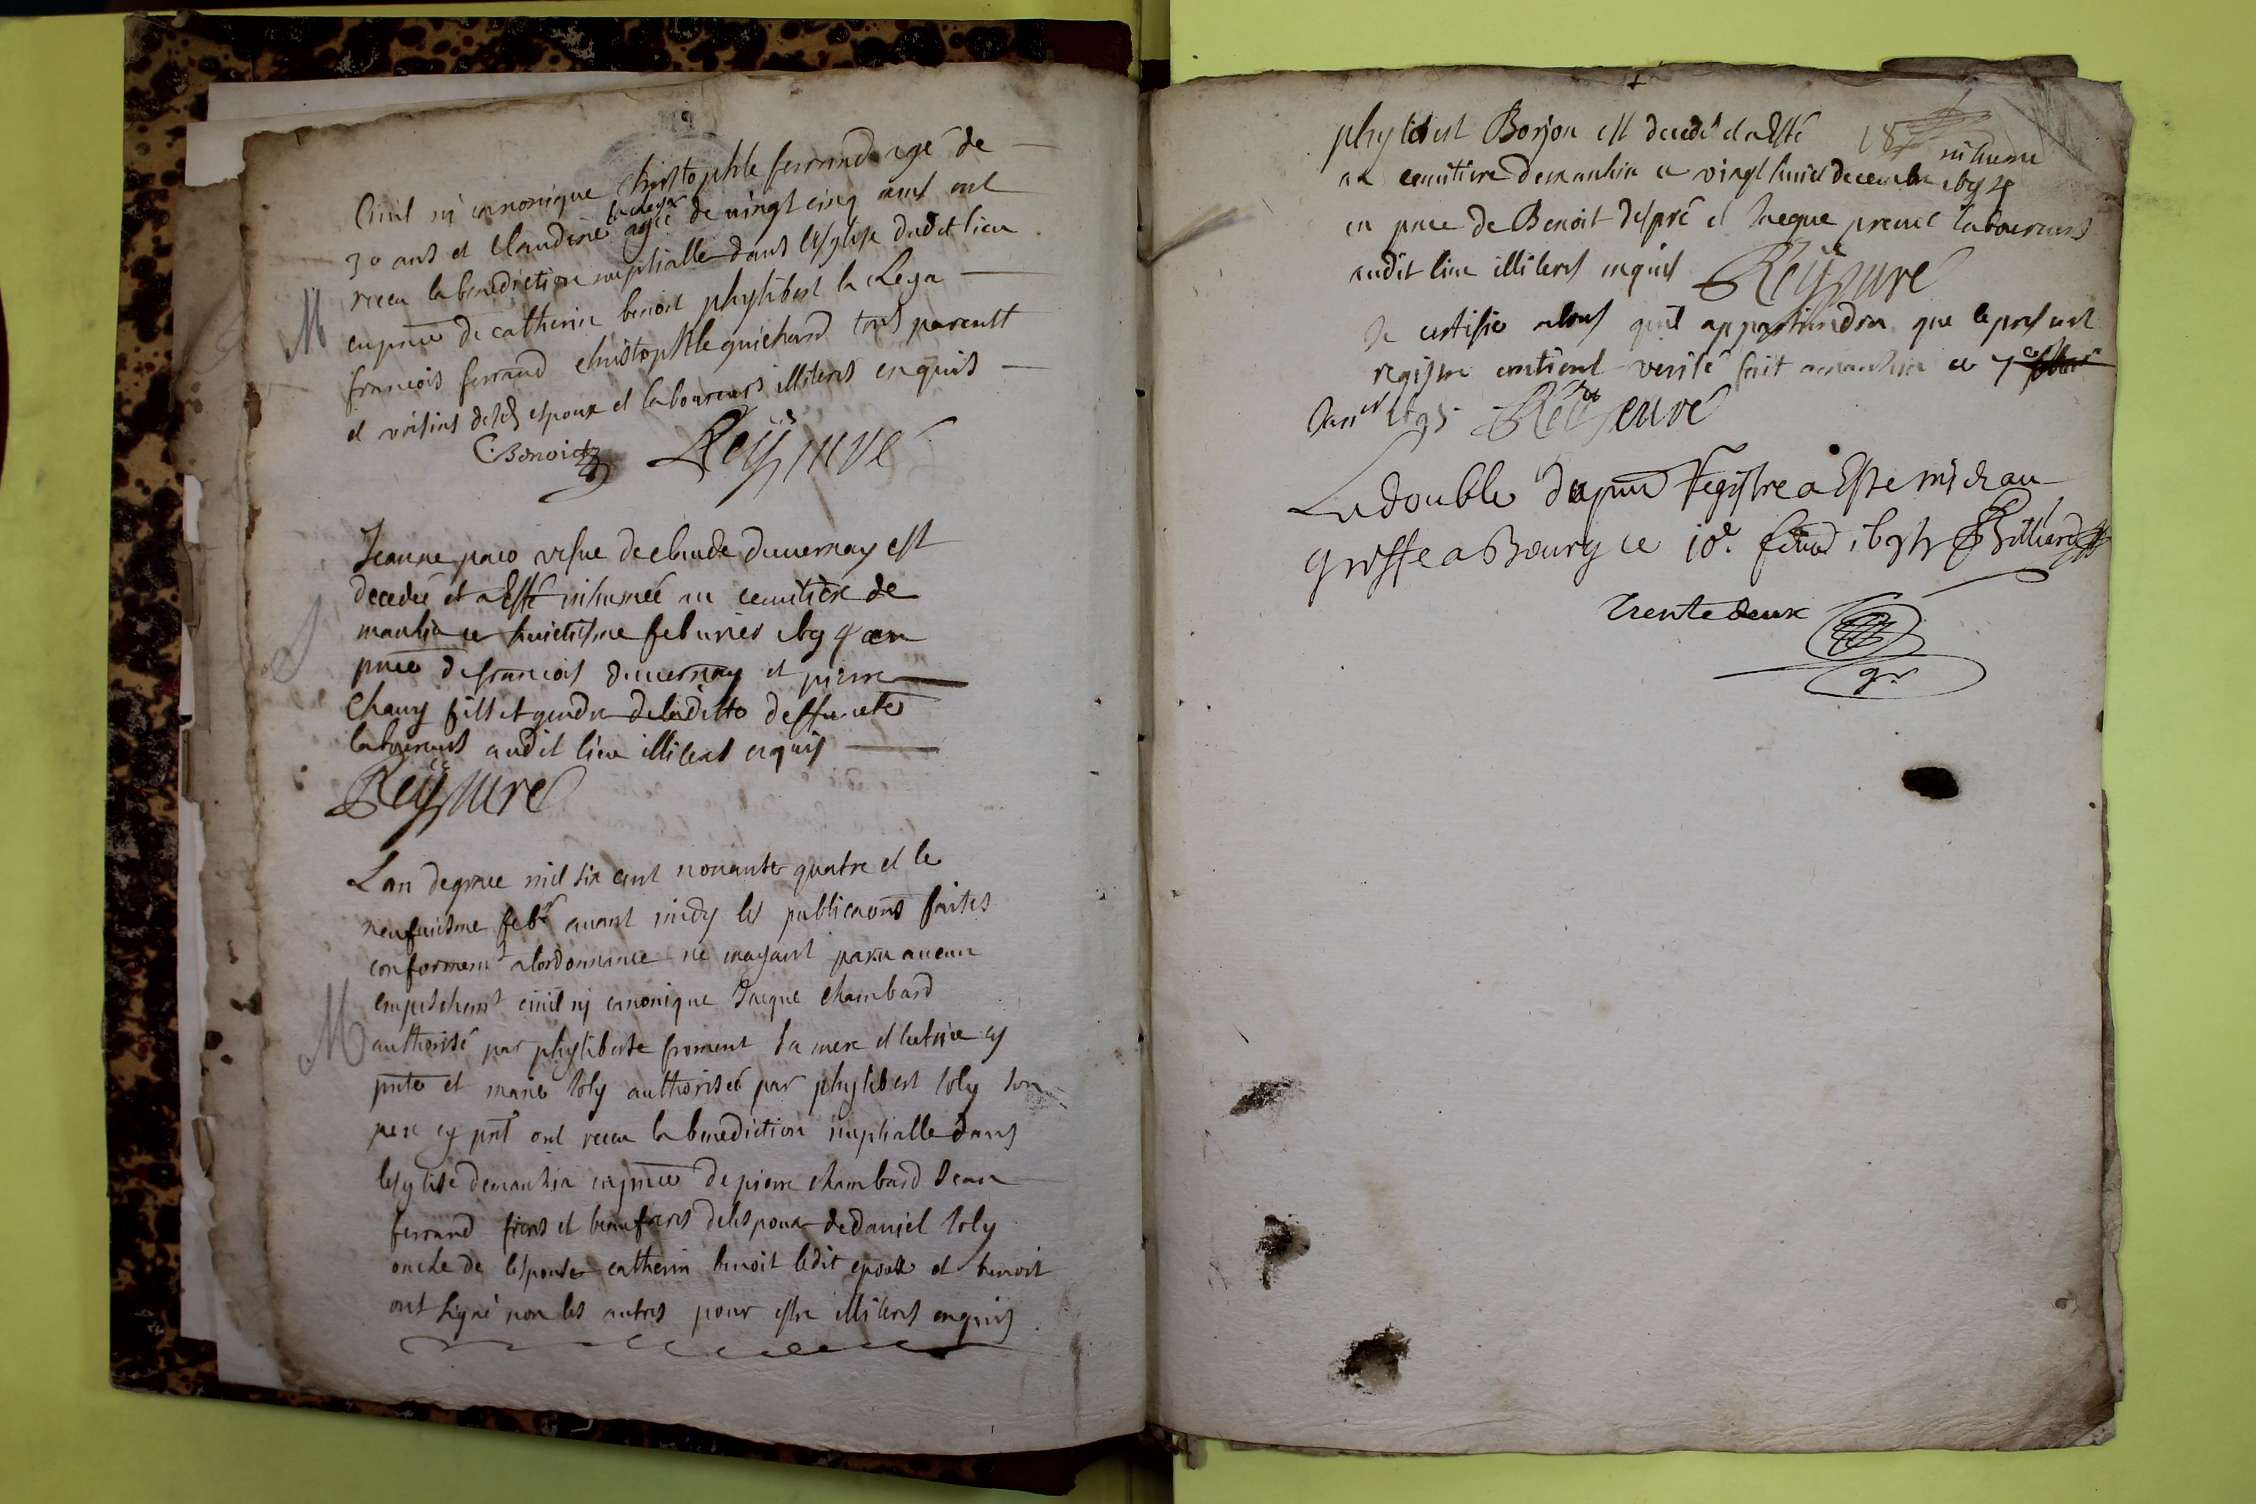 Civil nj canonique Christophle ferrand agé de
30 ans et Claudine la Leya agée de vingt cinq ans ont
receu la benediction nuptialle dans lesglise dudit lieu
M
en pnce de catherin benoit phylibert la Leya
francois ferrand christophle guichard tous parentt
et voisins desd espoux et laboureurs illiteres enquis
C Benoict Reÿ
Jeanne paco vefve de claude duuernay est
decedée et a Esté inhumée au cemitiere de
manzia ce huictisme feburier 1694 en
pnce de francois duuernay et pierre
Chauy fils et gendre de laditte deffuncte
laboureurs audit lieu illiteres enquis
Reÿ
Lan de grace mil six cent nonante quatre et le
neufuiesme feb avant midy les publicaons faites
conformemt a lordonnance ne mayant paru aucun
empeschemt civil nj canonique Jacque chambard
M
authorisé par phyliberte froment sa mere et tutrice cy
pnte et marie Joly authorisée par phylibert Joly son
pere cy pnt ont receu la benediction nuptialle dans
lesglise de manzia en pnce de pierre chambard Jean
ferrand freres et beaufreres delespoux de daniel Joly
oncle de lespouse catherin benoit ledit epoux et benoit
ont signé non les autres pour estre illiteres enquis
phylibert Borjon est decedé et a Esté inhumé
au cemitiere de manzia ce vingt huict decembre 1694
en pnce de Benoit despré et Jacque laboureurs
audit lieu illiteres enquis Reÿ
Je certifie a tous quil appartiendra que le present
registre contient verité fait a manzia ce 7e
Janer 1695
Le double du pnt Registre a Este mis au
greffe a Bourg ce 10e. 1695
trente deux